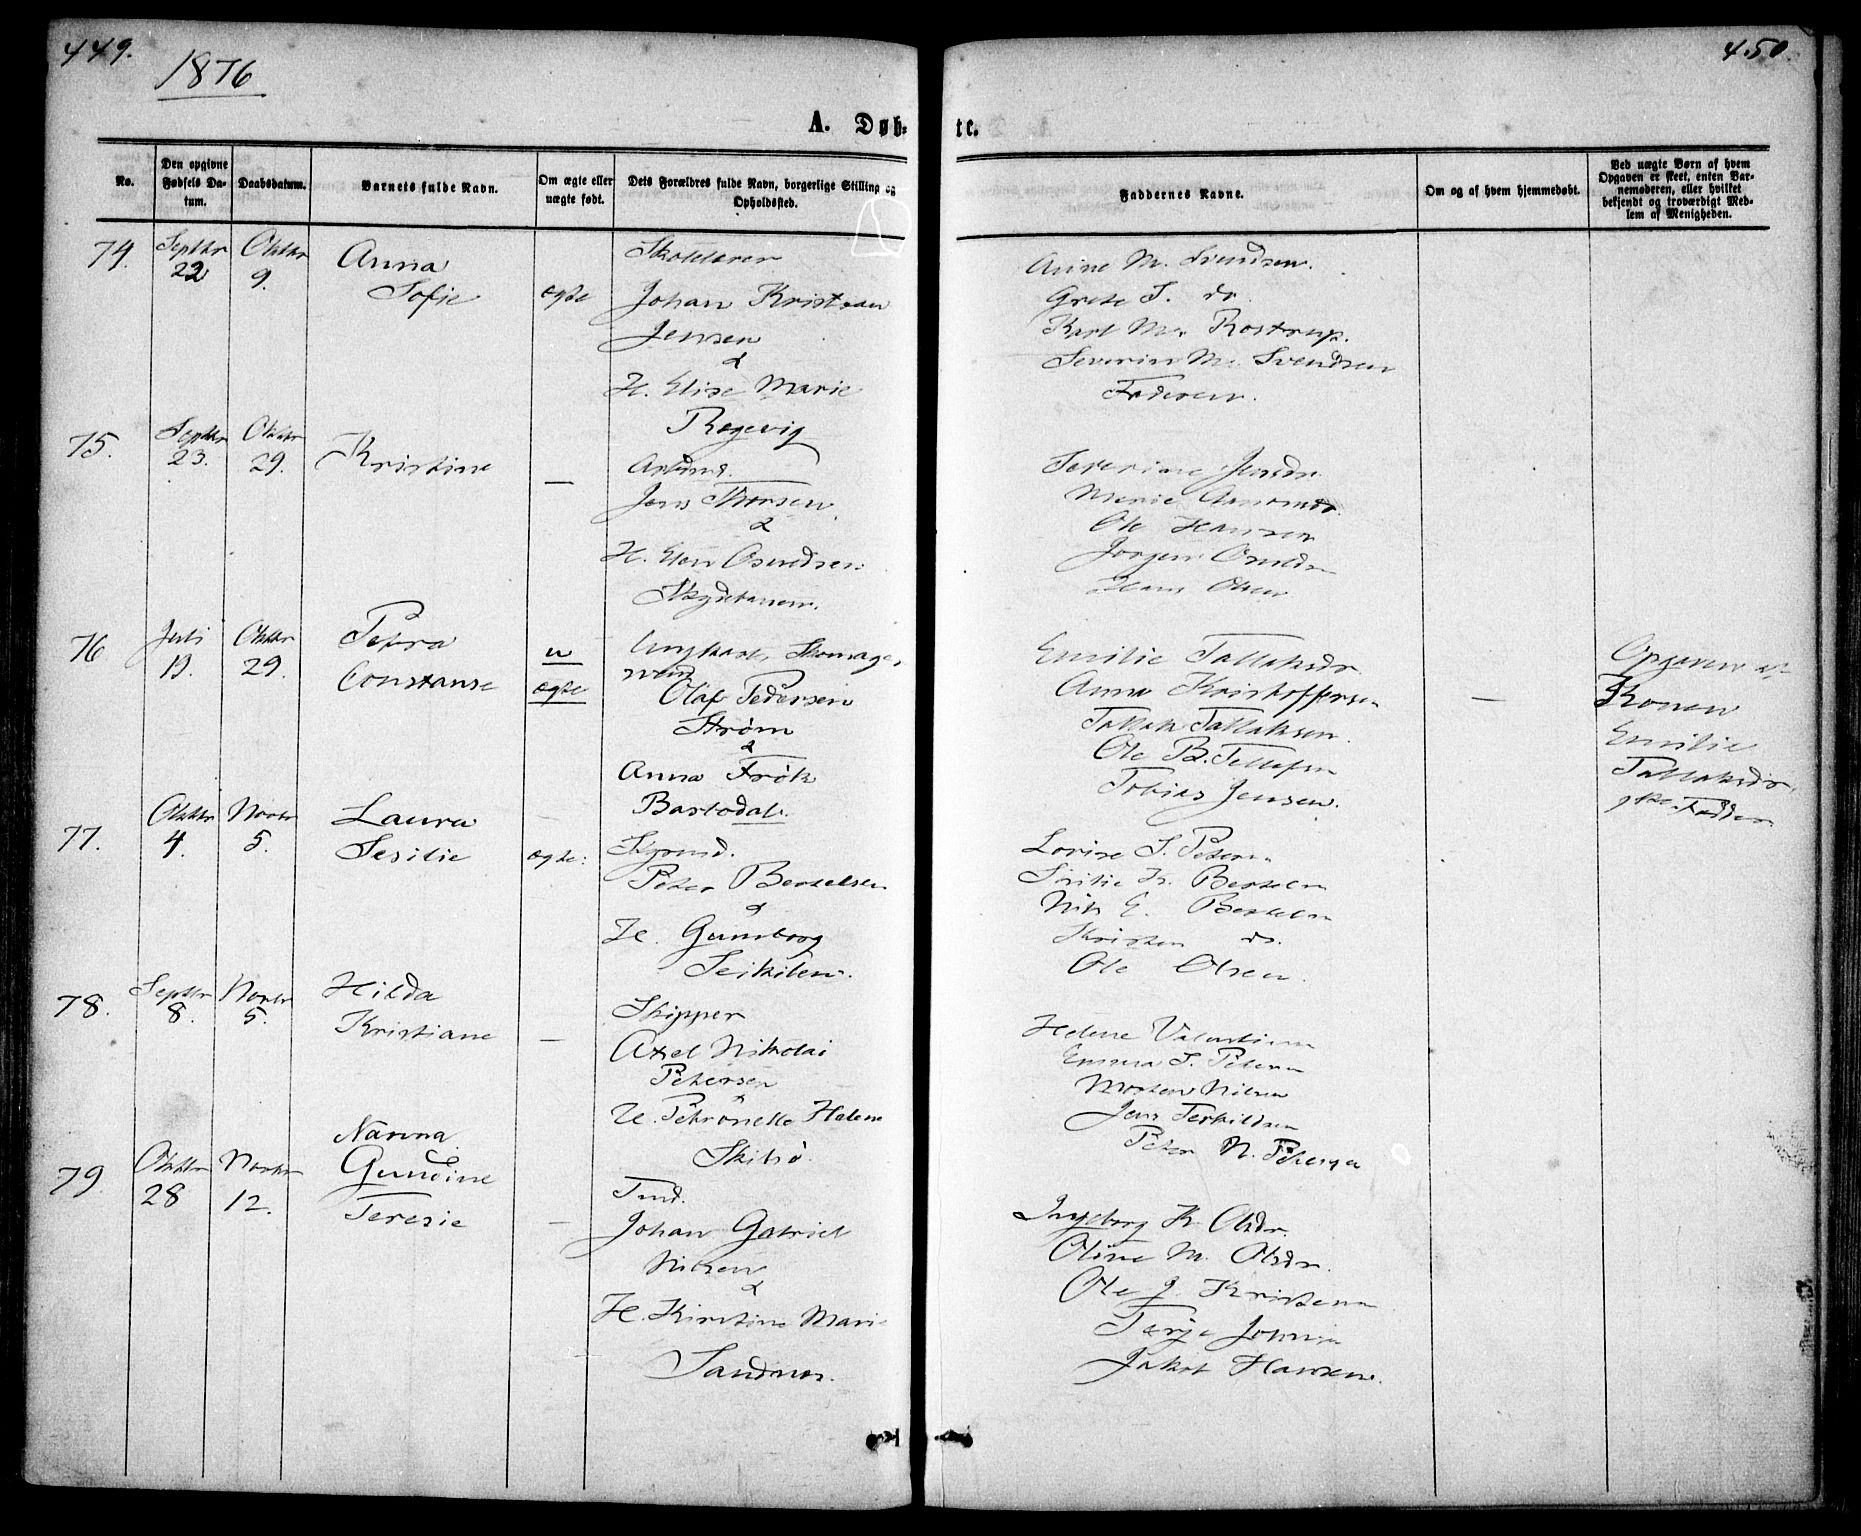 449.
1876
450.
A. Døb-
te.
No.
Den opgivne Fødsels Datum.
Daabsdatum.
Barnets fulde Navn.
Om ægte eller uægte født.
Dets Forældres fulde Navn, borgerlige Stilling og Opholdssted.
Faddernes Navne.
Om og af hvem hjemmedøbt.
Ved uægte Børn af hvem Opgaven er skeet, enten Barnemoderen, eller hvilket bekjendt og troværdigt Medlem af Menigheden.
74.
Septbr 22
Oktbr 9.
Anna
Sofie
ægte
Skolelærer
Johan Kristian
Jensen
&
H. Elise Marie
Rogevig
Anne M. Svendsen.
Grete S. do.
Karl M. Rostrup.
Severin M. Svendsen
Faderen.
75.
Septbr 23.
Oktbr 29.
Kristine
—
Arbmd.
Jens Thorsen
&
H. Elen Osmundsen
Skydebanen.
Severine Jensdr.
Marie
Ole Hansen
Jørgen
Hans Olsen
76
Juli 19.
Oktbr 29.
Petra
Constanse
u
ægte
Ungkarl, Skomager
Olaf Pedersen
Strøm
&
Anna Frøk
Barbodal.
Emilie Tallaksdr
Anna Kristoffersen
Tallak Tallaksen.
Ole B. Tellefsen
Tobias Jensen.
—
Opgaven af
Konen
Emilie
Tallaksdr,
Fadder
77.
Oktbr 4.
Novbr 5.
Laura
Sesilie
ægte:
Styrmd.
Peter Bertelsen
&
H. Gunborg
Seikilen.
Lovise S. Petersen
Sesilie K. Bertelsen
Nils E. Bertelsen
Kristen do.
Ole Olsen.
78.
Septbr 8.
Novbr 5.
Hilda
Kristiane
—
Skipper
Axel Nikolai
Petersen
&
H. Petronelle Helene
Skilsø.
Helene Valentinsen
Emma S. Petersen
Morten Nilsen
Jens Terkildsen
Peter N. Petersen
79.
Oktbr 28
Novbr 12.
Nanna
Gundine
Teresie
—
Tmd.
Johan Gabriel
Nilsen
&
H. Kirstine Marie
Sandnes.
Ingeborg K. Olsdr.
Oline M. Olsdr.
Ole J. Kristensen
Terje Johnsen
Jakob Hansen.